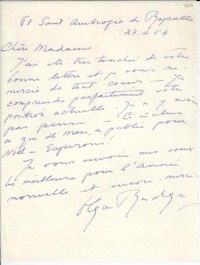 60 Sant' Ambrogio di Rapallo
27.12.54
Chère Madame
J'ai été très touchée de votre
bonne lettre et je vous re-
mercie de tout coeur — Je
comprends parfaitement votre
position actuelle. Je n'y avais
pas pensé — C'
a qu'il a publié pour
Noël — Espérons.
Je vous envoie mes voeux
les meilleurs pour l'Année
nouvelle et encore merci
Olga Rudge